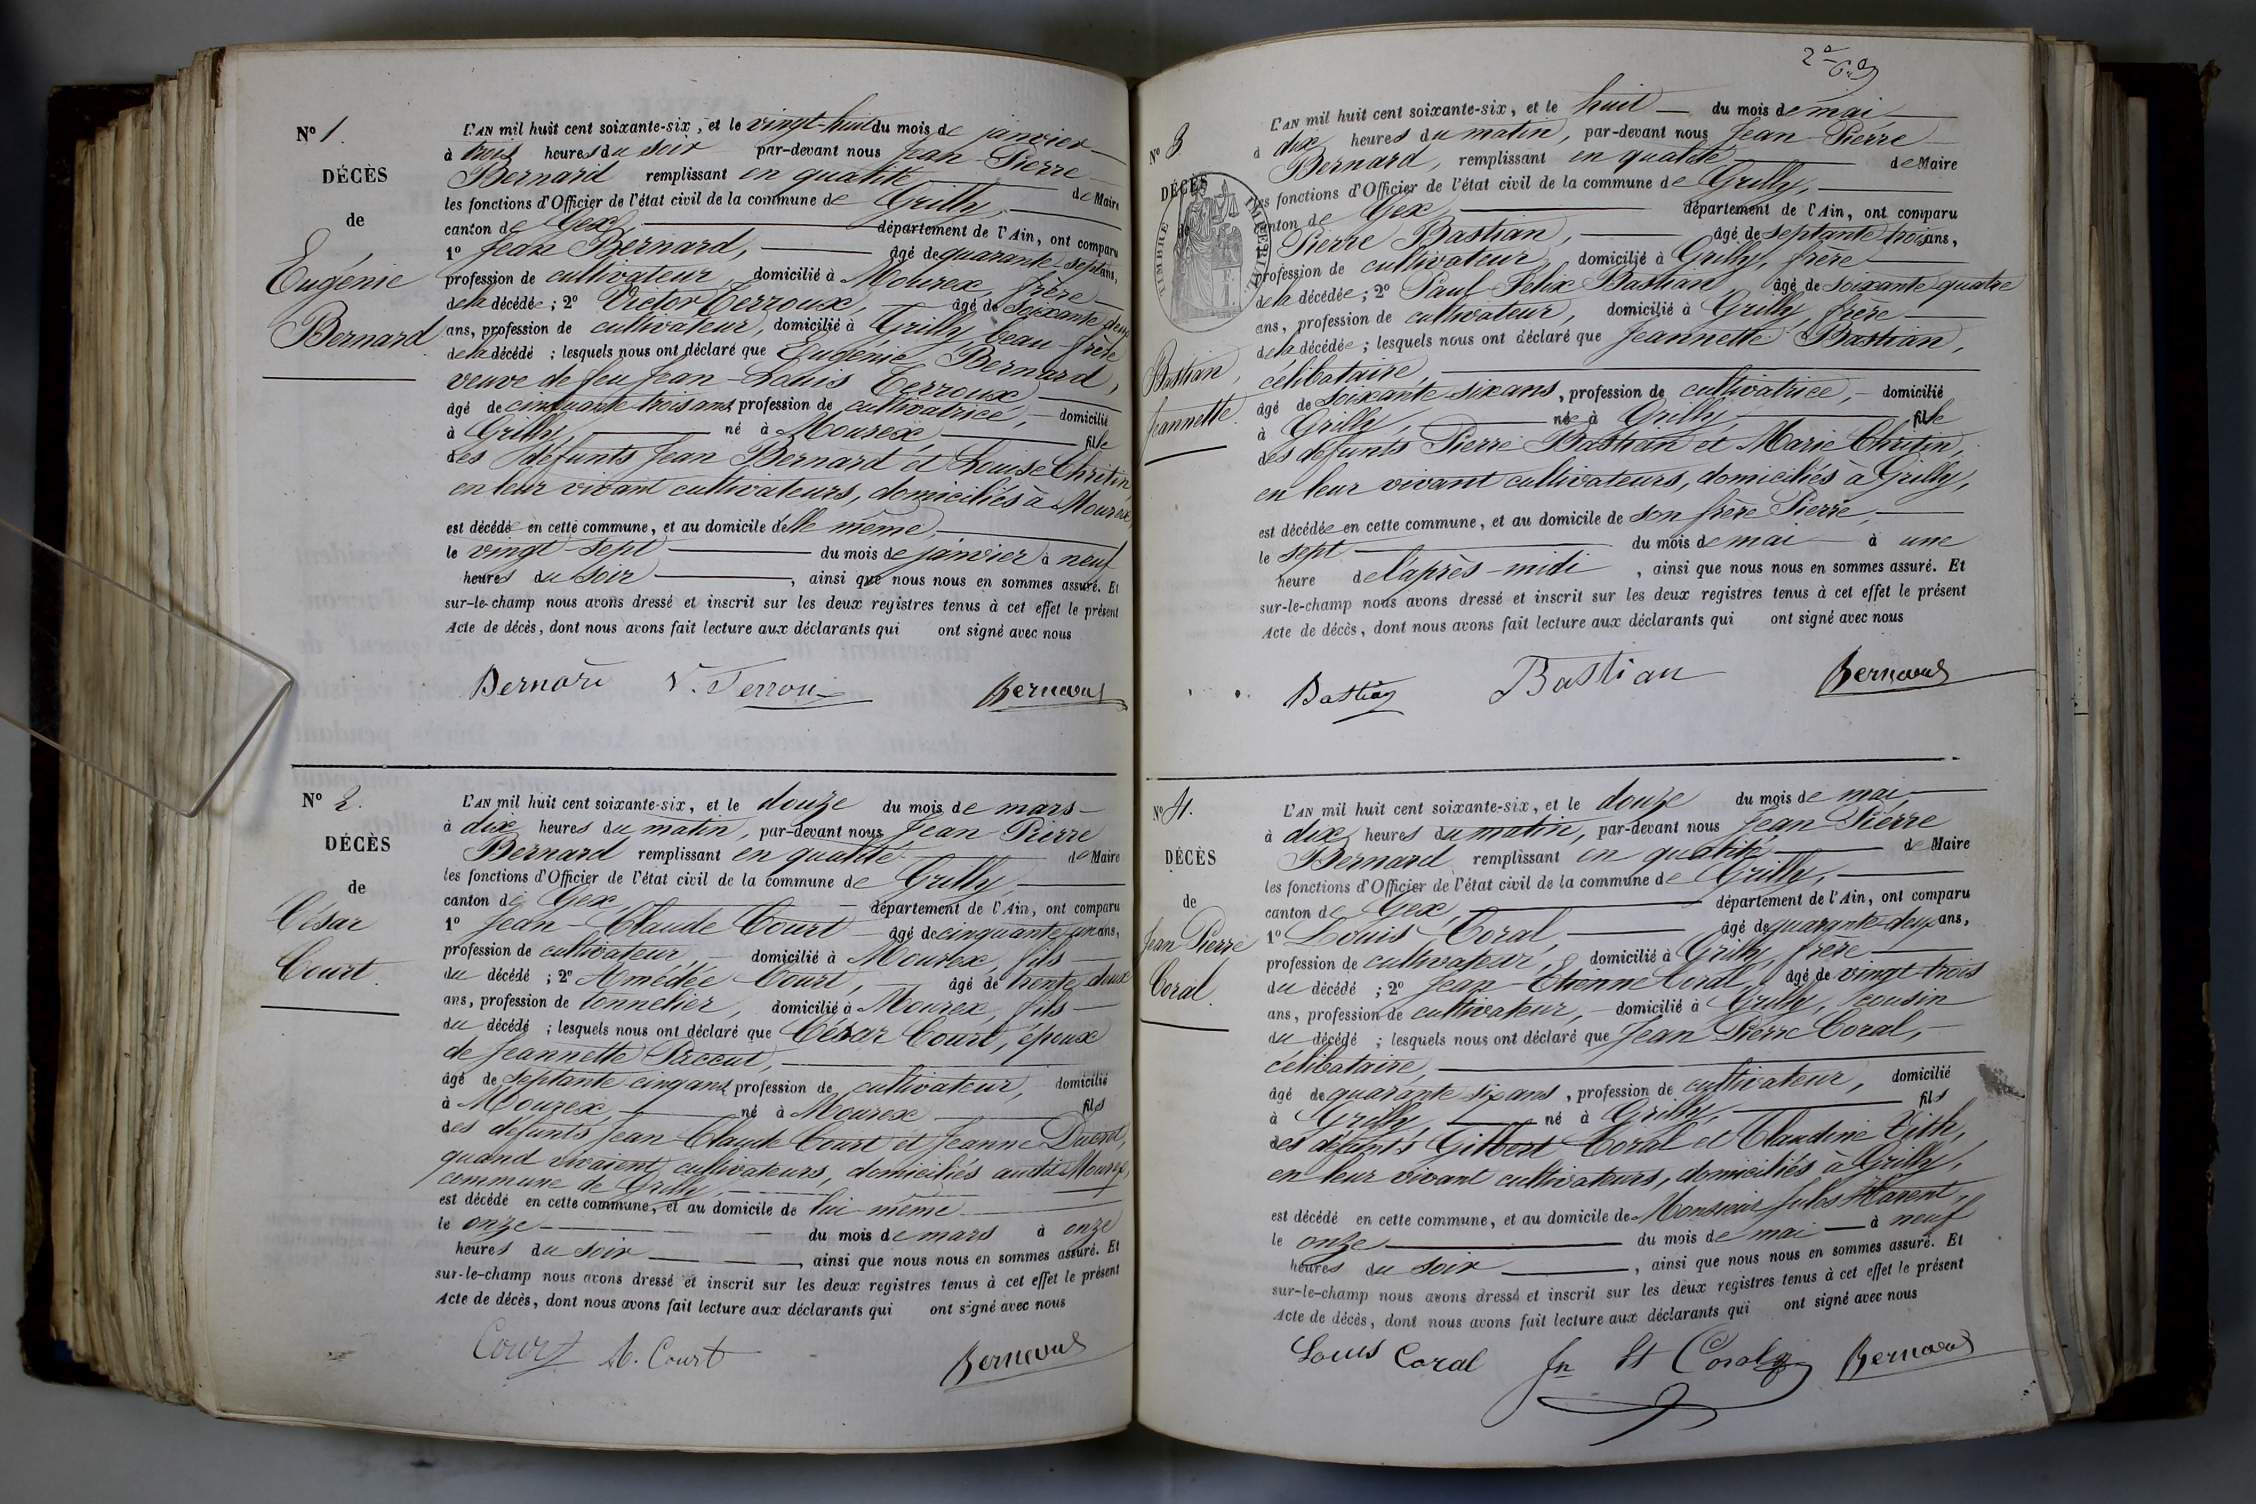 N° 1.
DÉCÈS
de
Eugénie
Bernard
L'AN mil huit cent soixante-six, et le vingt-huit du mois de janvier
à trois heures du soir par-devant nous Jean Pierre
Bernard remplissant en qualité de Maire
les fonctions d'Officier de l'état civil de la commune de Grilly,
canton de Gex, département de l'Ain, ont comparu
1° Jean Bernard, âgé de quarante-sept ans,
profession de cultivateur, domicilié à Mourex, frère
de la décédée; 2° Victor Terroux, âgé de soixante deux
ans, profession de cultivateur, domicilié à Grilly, beau-frère
de la décédé; lesquels nous ont déclaré que Eugénie Bernard,
veuve de feu Jean-Louis Terroux
âgé de cinquante trois ans profession de cultivatrice, domicilié
à Grilly, né à Mourex, fille
des défunts Jean Bernard et Louise Chritin,
en leur vivant cultivateurs, domiciliés à Mourex,
est décédée en cette commune, et au domicile d'elle même,
le vingt-sept du mois de janvier à neuf
heures du soir, ainsi que nous nous en sommes assuré. Et
sur-le-champ nous avons dressé et inscrit sur les deux registres tenus à cet effet le présent
Acte de décès, dont nous avons fait lecture aux déclarants qui ont signé avec nous
Bernard V. Terroux Bernard
N° 2.
DÉCÈS
de
César
Court.
L'AN mil huit cent soixante-six, et le douze du mois de mars
à dix heures du matin, par-devant nous Jean Pierre
Bernard remplissant en qualité de Maire
les fonctions d'Officier de l'état civil de la commune de Grilly,
canton de Gex, département de l'Ain, ont comparu
1° Jean-Claude Court âgé de cinquante un ans,
profession de cultivateur, domicilié à Mourex, fils
du décédé; 2° Amédée Court, âgé de trente deux
ans, profession de tonnelier, domicilié à Mourex, fils
du décédé; lesquels nous ont déclaré que César Court, époux
de Jeannette
âgé de septante cinq ans, profession de cultivateur, domicilié
à Mourex, né à Mourex fils
des défunts Jean-Claude Court et Jeanne
quand vivaient cultivateurs, domiciliés audit Mourex,
commune de Grilly,
est décédé en cette commune, et au domicile de lui-même
le onze du mois de mars à onze
heures du soir, ainsi que nous nous en sommes assuré. Et
sur-le-champ nous avons dressé et inscrit sur les deux registres tenus à cet effet le présent
Acte de décès, dont nous avons fait lecture aux déclarants qui ont signé avec nous
Court A. Court Bernard
N° 3
DÉCÈS
TIMBRE IMPÉRIAL
Bastian,
Jeannette.
L'AN mil huit cent soixante-six, et le huit du mois de mai,
à dix heures du matin, par-devant nous Jean Pierre
Bernard, remplissant en qualité de Maire
les fonctions d'Officier de l'état civil de la commune de Grilly,
canton de Gex département de l'Ain, ont comparu
Pierre Bastian, âgé de septante trois ans,
profession de cultivateur, domicilié à Grilly, frère
de la décédée; 2° Paul Félix Bastian, âgé de soixante quatre
ans, profession de cultivateur, domicilié à Grilly, frère
de la décédée; lesquels nous ont déclaré que Jeannette Bastian,
célibataire,
âgé de soixante-six ans, profession de cultivatrice, domicilié
à Grilly, née à Grilly, fille
des défunts Pierre Bastian et Marie Chritin,
en leur vivant cultivateurs, domiciliés à Grilly,
est décédée en cette commune, et au domicile de son frère Pierre,
le sept du mois de mai à une
heure de l'après-midi, ainsi que nous nous en sommes assuré. Et
sur-le-champ nous avons dressé et inscrit sur les deux registres tenus à cet effet le présent
Acte de décès, dont nous avons fait lecture aux déclarants qui ont signé avec nous
Bastian Bastian Bernard
N° 4.
DÉCÈS
de
Jean Pierre
Coral.
L'AN mil huit cent soixante-six, et le douze du mois de mai,
à dix heures du matin, par-devant nous Jean Pierre
Bernard remplissant en qualité de Maire
les fonctions d'Officier de l'état civil de la commune de Grilly,
canton de Gex, département de l'Ain, ont comparu
1° Louis Coral, âgé de quarante-deux ans,
profession de cultivateur, domicilié à Grilly, frère
du décédé; 2° Jean-Etienne Coral, âgé de vingt-trois
ans, profession de cultivateur, domicilié à Grilly, cousin
du décédé; lesquels nous ont déclaré que Jean Pierre Coral,
célibataire,
âgé de quarante six ans, profession de cultivateur, domicilié
à Grilly, né à Grilly, fils
des défunts Gilbert Coral et Claudine
en leur vivant cultivateurs, domiciliés à Grilly,
est décédé en cette commune, et au domicile de Monsieur Jules
le onze du mois de mai à neuf
heures du soir, ainsi que nous nous en sommes assuré. Et
sur-le-champ nous avons dressé et inscrit sur les deux registres tenus à cet effet le présent
Acte de décès, dont nous avons fait lecture aux déclarants qui ont signé avec nous
Louis Coral Jn Et Coral Bernard